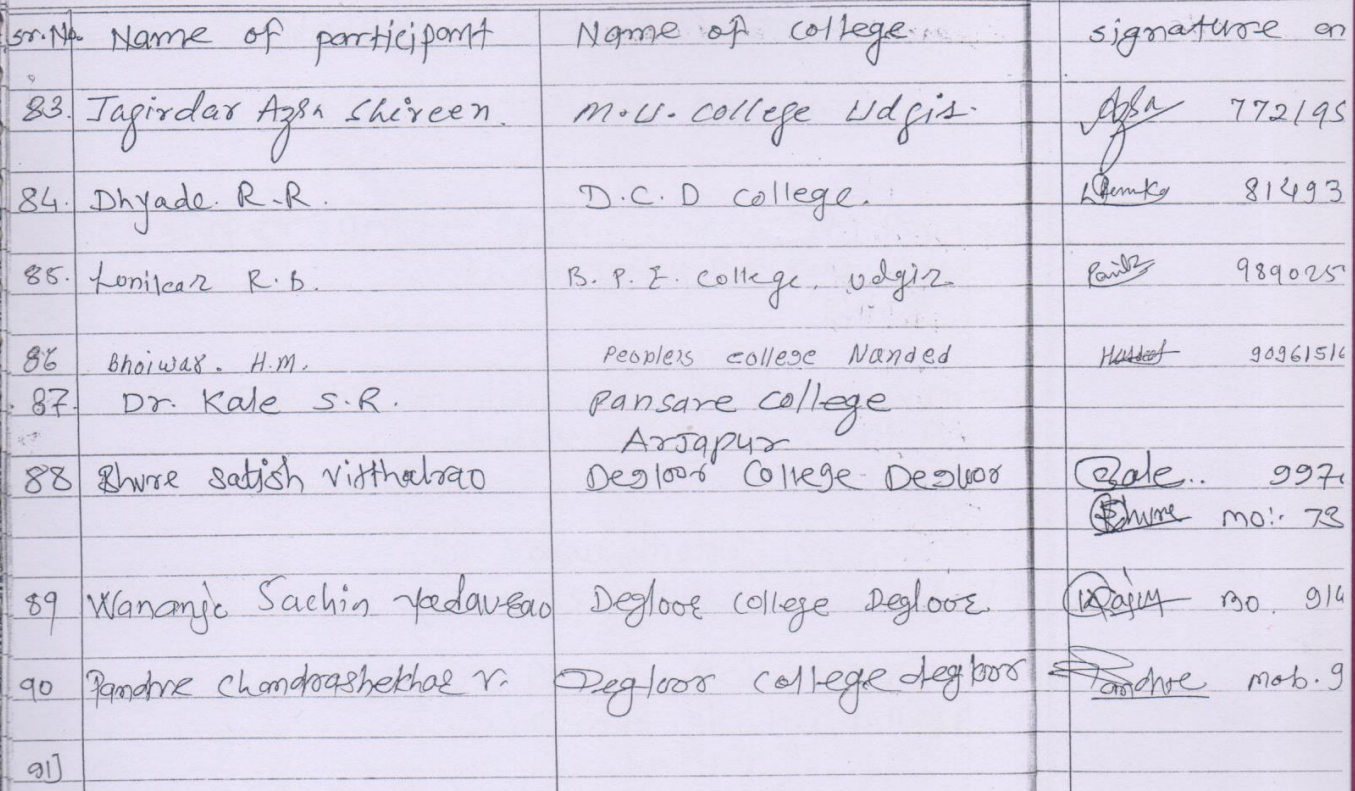 Sr.No. Name of participant Name of college signature en
83. Jagirdar Azra Shireen. M.U. College Udgir. Azra 772195
84. Dhyade. R.R. D.C.D College. 81493
85. Lonikar R.B. B.P.E. College, udgir 989025
86 Bhoiwar. H.M. Peoples college Nanded 9096151
87. Dr. Kale S.R. Pansare College
Arjapur
88 Bhure Satish Vitthalrao Degloor College Degloor Bale.. 997
Bhure mo:- 73
89 Wananje Sachin Yadavrao Degloor College Degloor mo. 914
90 Pandhre Chandrashekhar V. Degloor College degloor Pandhre mob. 9
91]